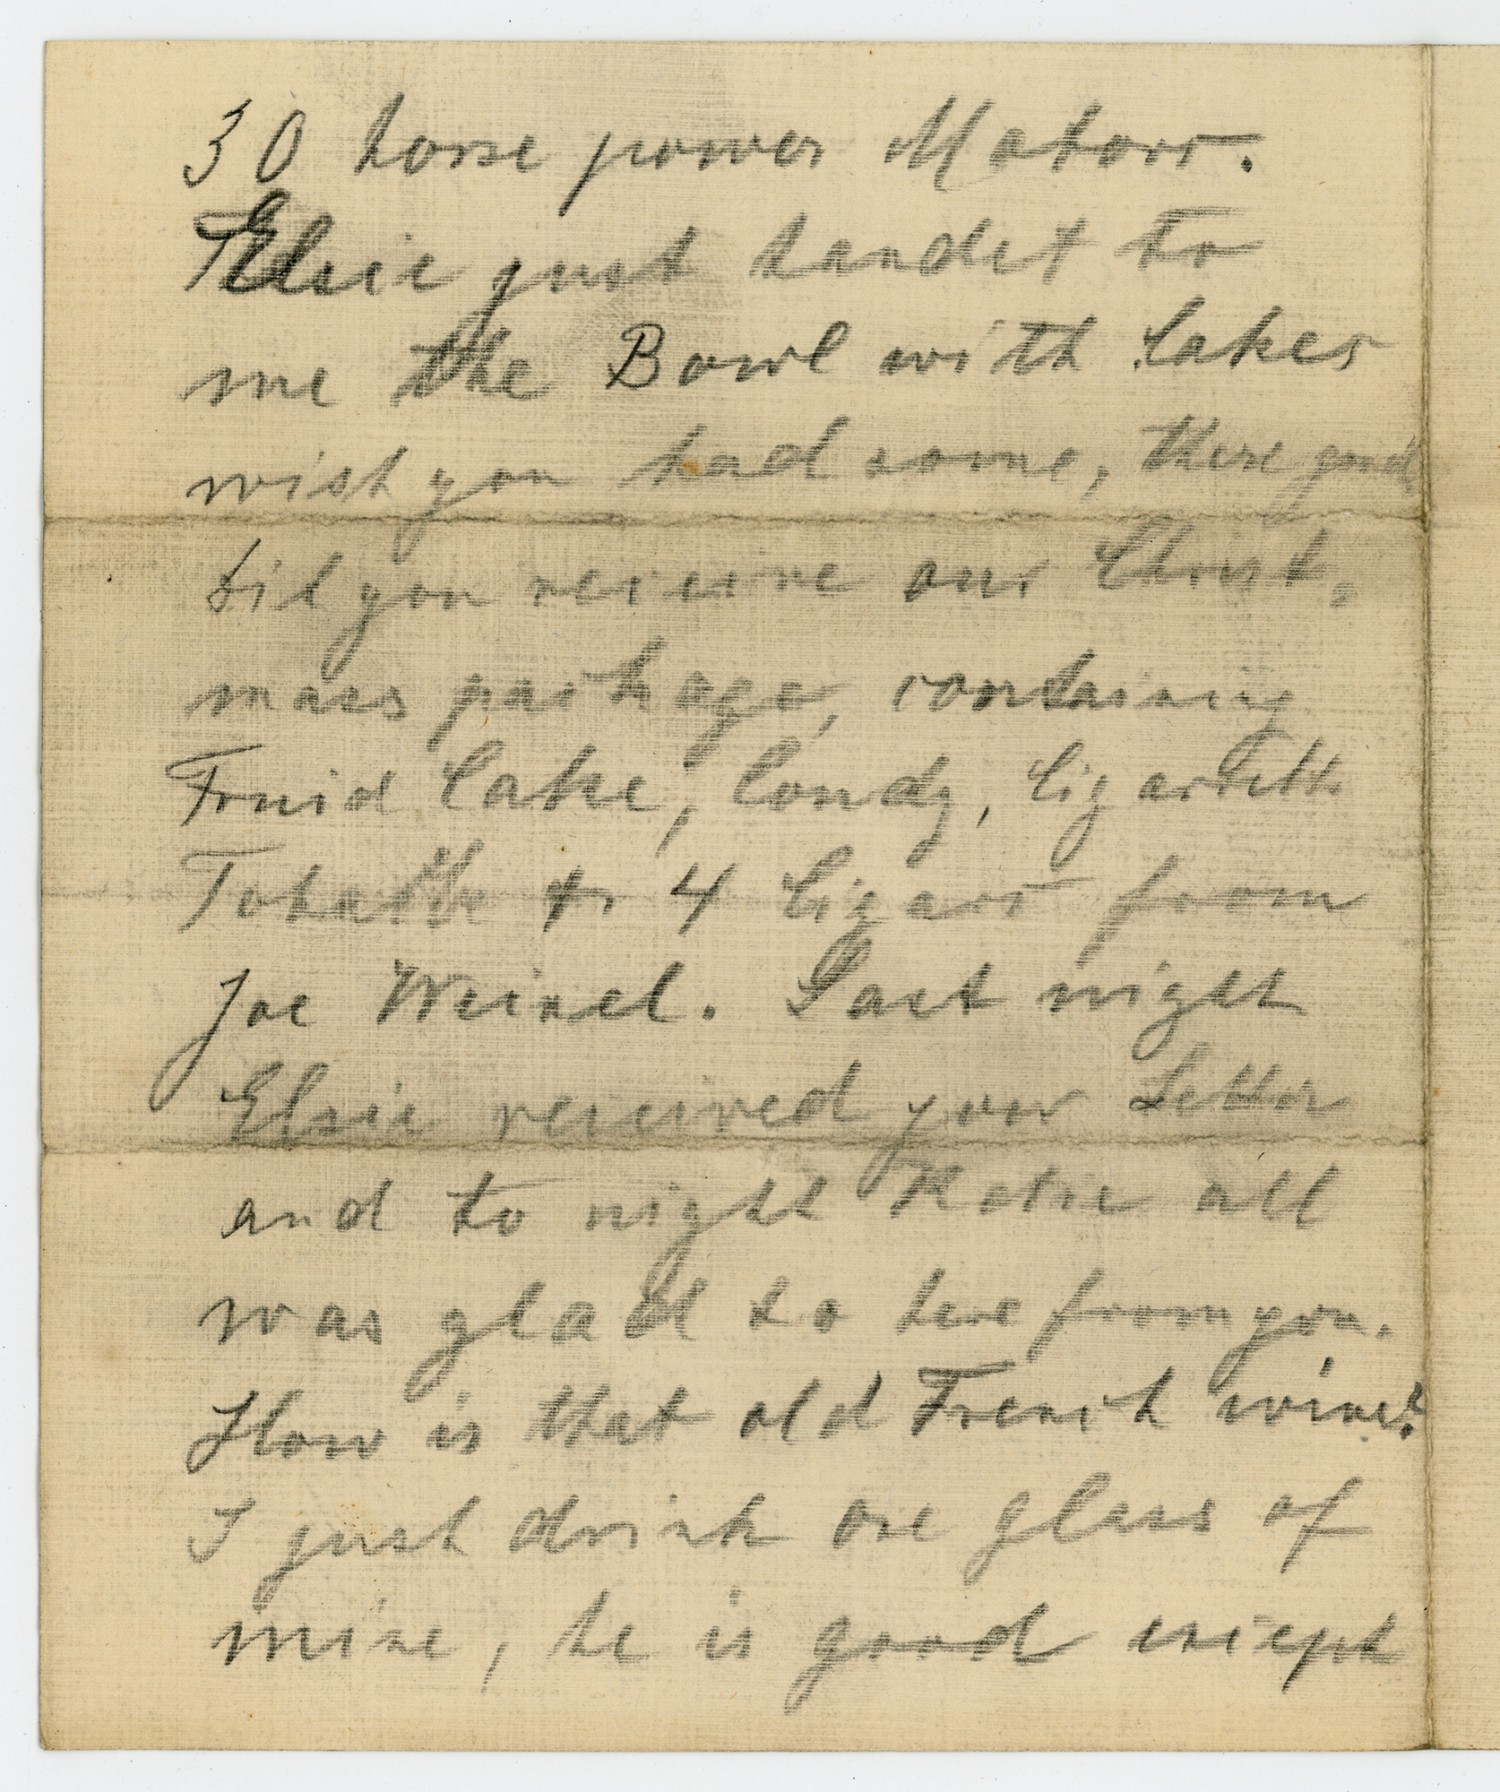 30 horse power Motors.
Elsie just handet to
me the Bowl with Cakes
wish you had some, there good
Dit you receive our Christ,
mass package, containing
Fruid Cake, Condy, Cigarette
Tobacco & 4 Cigars from
Joe Weinel. Last night
Elsie received your Letter
and to night Katie all
was glad to here from you.
How is that old French wine?
I just drink one glass of
mine, he is good except